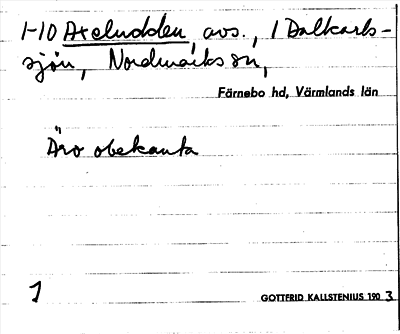 1-10 Axeludden, avs., I Dalkarls-
sjön, Nordmarks sn,
Färnebo hd, Värmlands län
Äro obekanta
1
GOTTFRID KALLSTENIUS 190 3